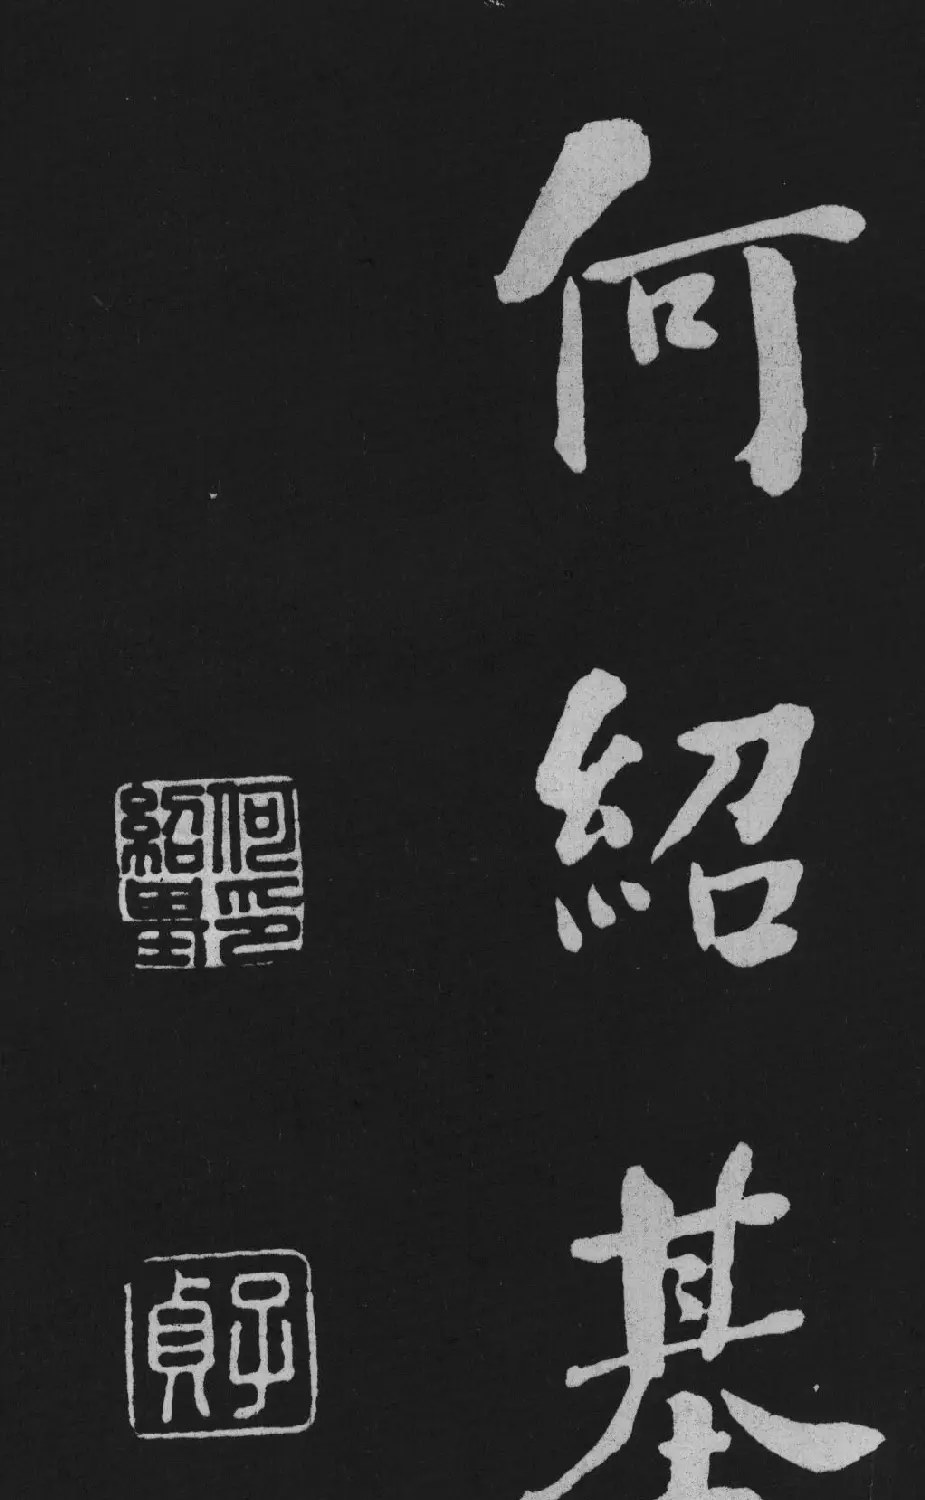 何紹基
何紹基印
子貞